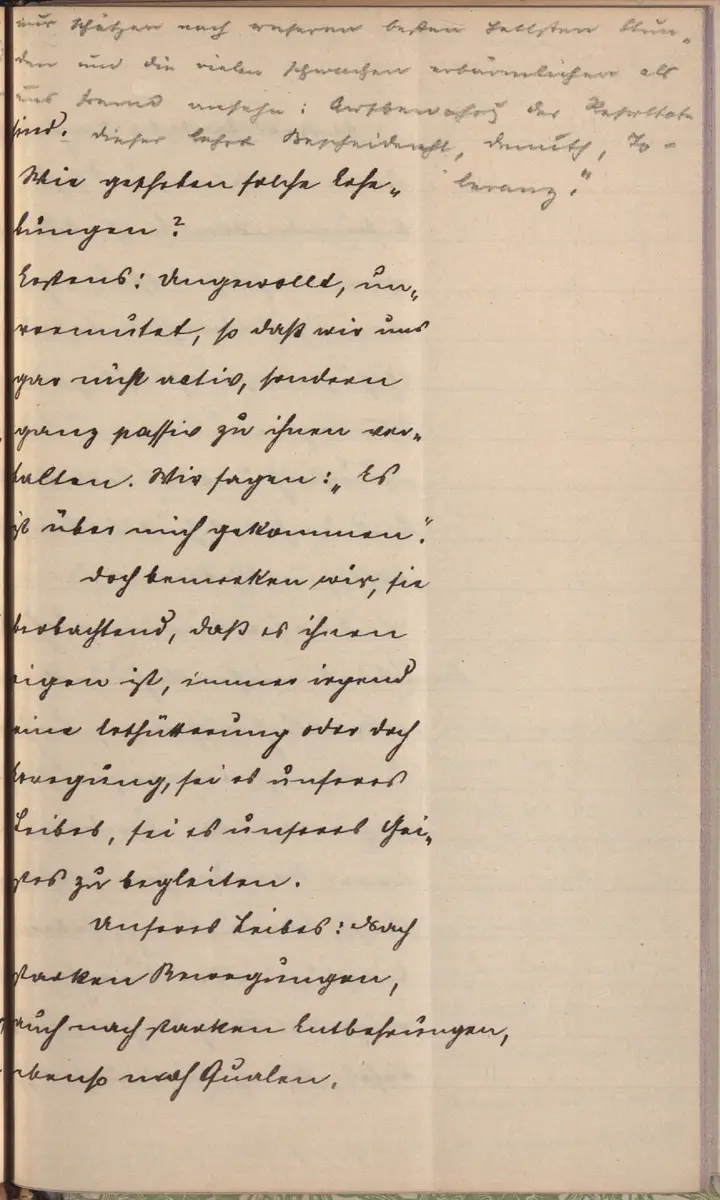 nur schätzen nach unseren besten hellsten Stun„
den und die vielen schwachen erbärmlichen als
uns fremd ansehn: Aufbewahrg der Resultate
sind. dieser lehrt Bescheidenheit, Demuth, To-
leranz.“
Wie geschehen solche Erhe„
bungen?
Erstens: Ungewollt, un„
vermutet, so daß wir uns
gar nicht activ, sondern
ganz passiv zu ihnen ver„
halten. Wir sagen: „Es
ist über mich gekommen.“
Doch bemerken wir, sie
beobachtend, daß es ihnen
eigen ist, immer irgend
eine Erschütterung oder doch
Erregung, sei es unseres
Leibes, sei es unseres Gei„
stes zu begleiten.
Unseres Leibes: Nach
starken Bewegungen,
auch nach starken Entbehrungen,
ebenso nach Qualen,